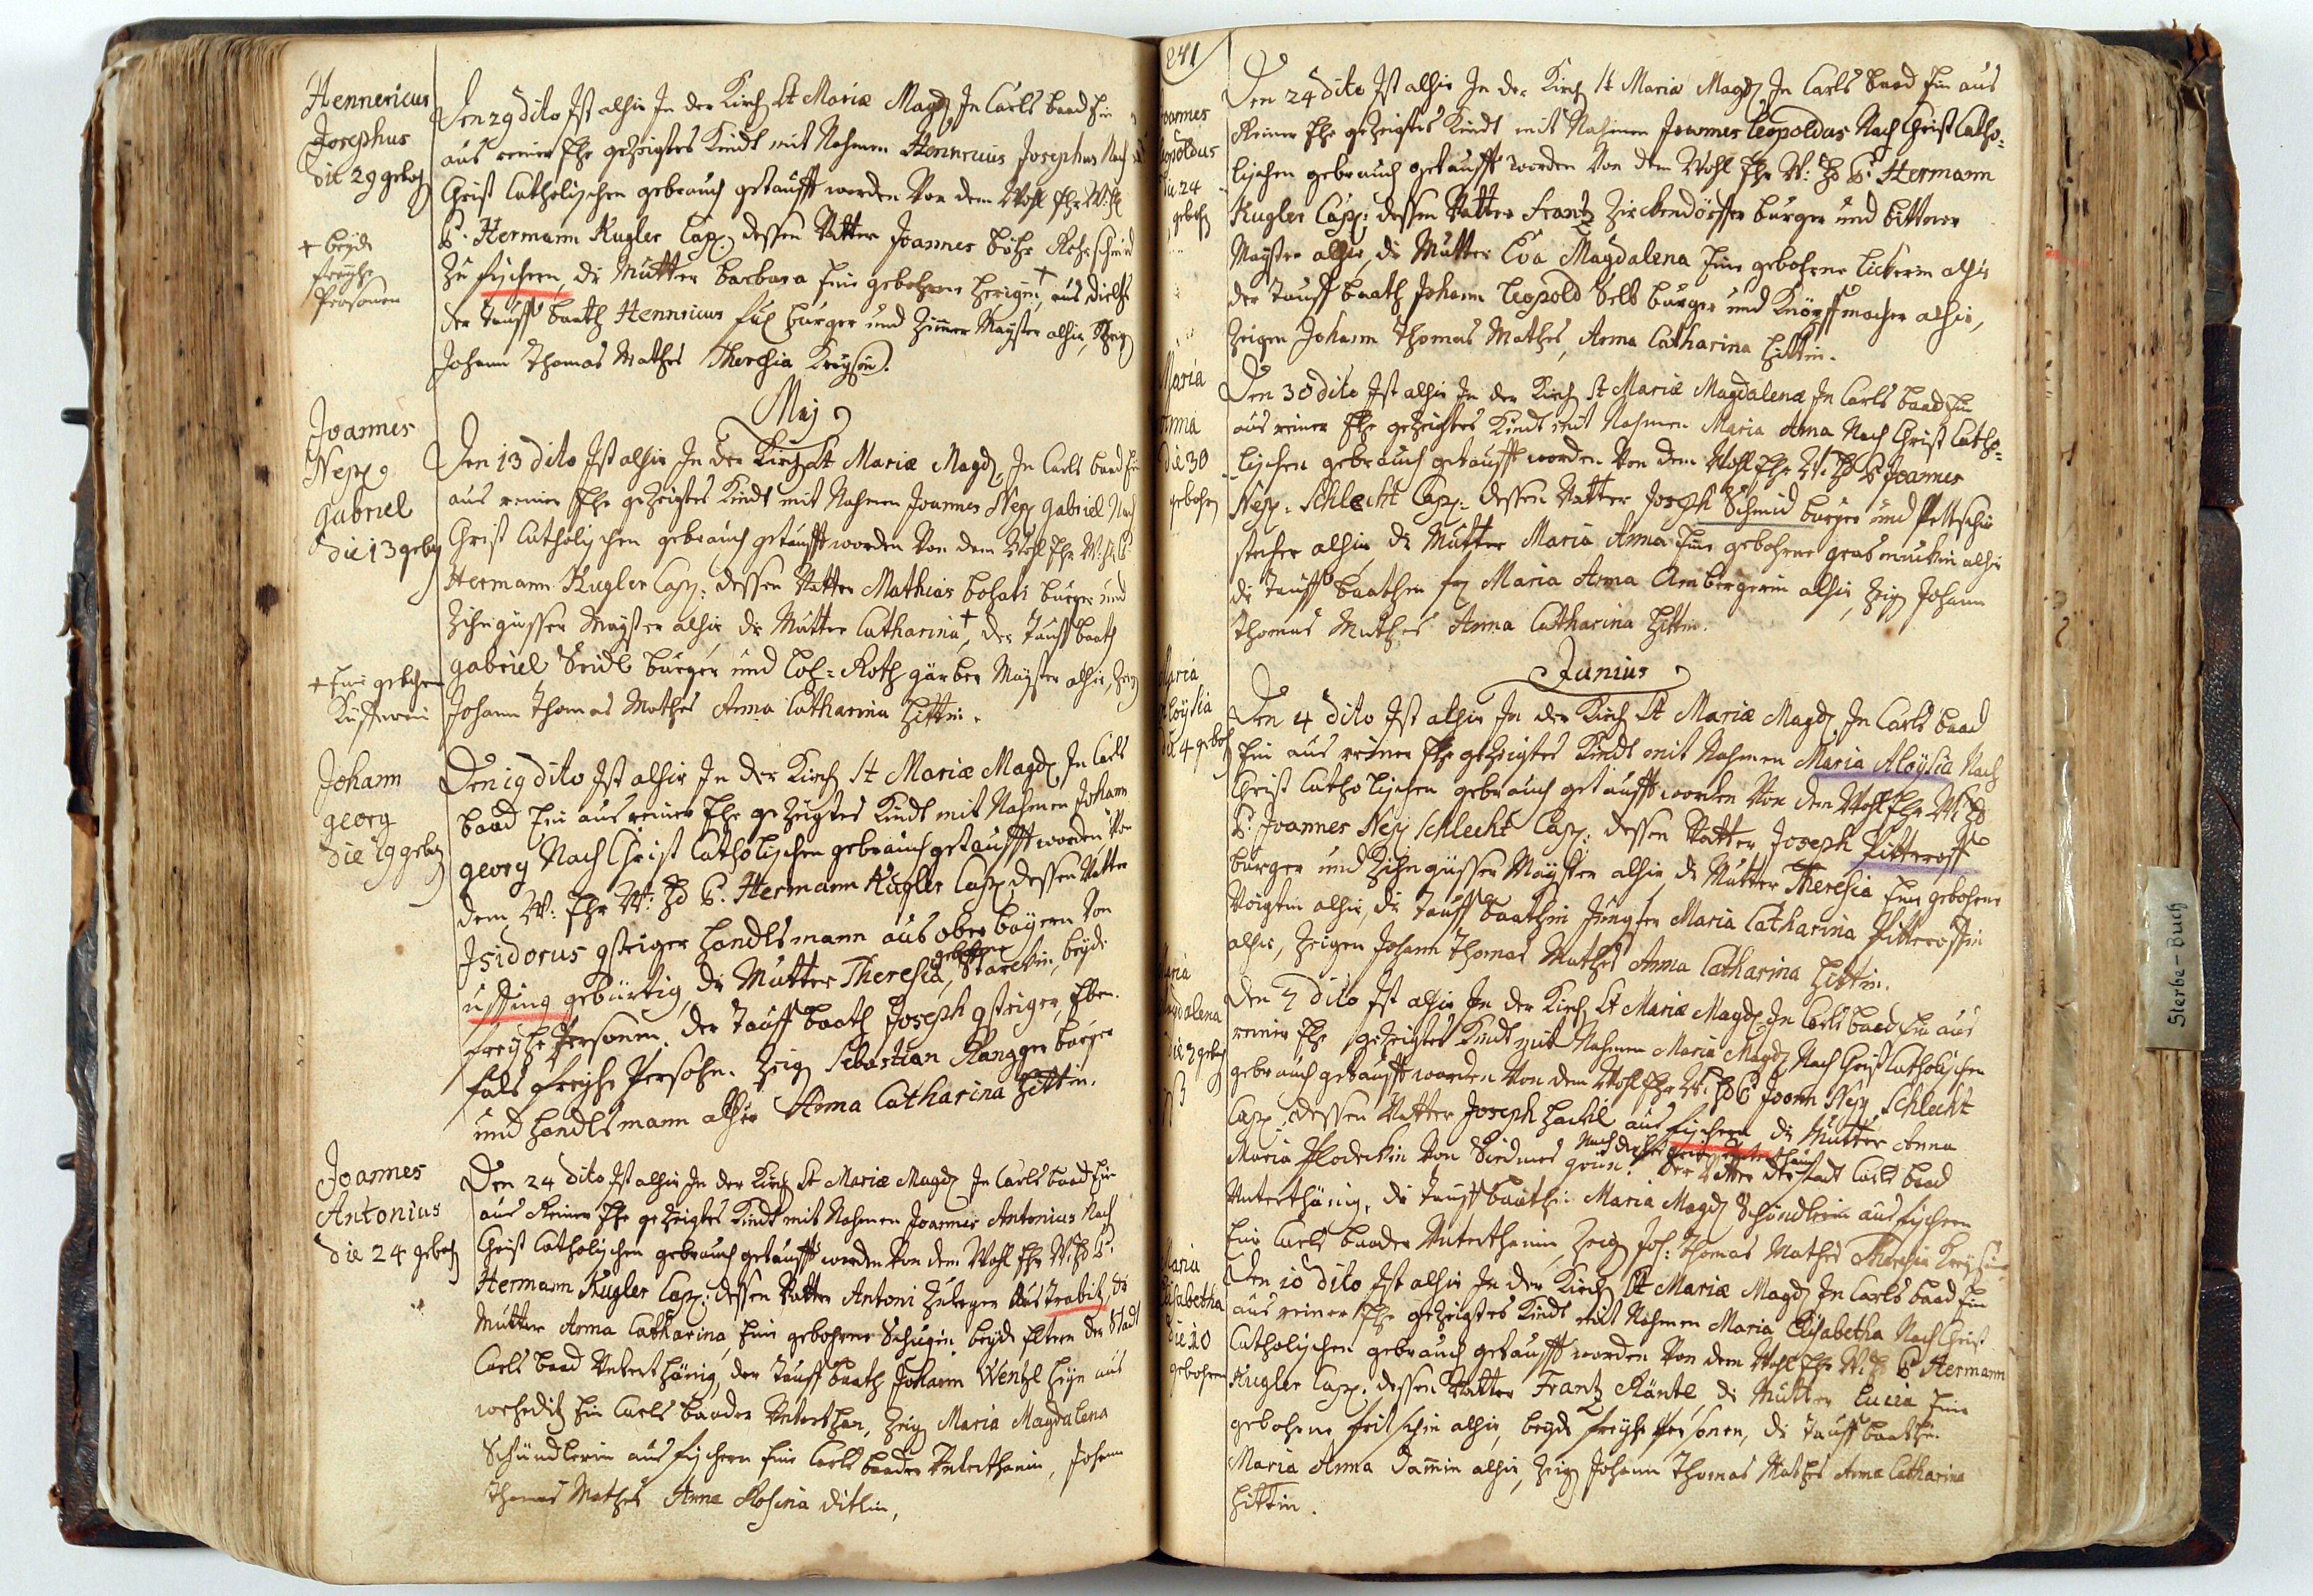 Hennericus
Josephus
die 29 geboh
+ beyde
freyhe
Personen
Den 29 dito Ist alhir In der Kirch St Mariæ Magd In Carls baad Ein
aus reiner Ehe gezeigtes Kindt mit Nahmen Hennricus Josephus Nach
Christ Catholischen gebrauch getaufft worden Von dem Wohl Ehr W:
P. Hermann Kugler Cap: dessen Vatter Joannes
zu fischern, die Mutter barbara Eine gebohrne + aus
der tauff baath Hennricus burger und Zimer Mayster alhir, Zeig
Johann Thomas Mathes Theresia
Maj
Joannes
Nep
gabriel
die 13 geboh
+ Eine gebohrne
Den 13 dito Ist alhir In der Kirch St Mariæ Magd In Carls baad Ein
aus reiner Ehe gezeigtes Kindt mit Nahmen Joannes Nep gabriel Nach
Christ Catholischen gebrauch getaufft worden Von dem Wohl Ehr W: P
Hermann Kugler Cap: dessen Vatter Mathias burger und
Zihngüsser Mayster alhir die Mutter Catharina +, der tauff baath
gabriel Seidl burger und Roth gärber Mayster alhir, Zeig
Johann Thomas Mathes Anna Catharina Hittin.
Johann
georg
die 19 geboh
Den 19 dito Ist alhir In der Kirch St Mariæ Magd In Carls
baad Ein aus reiner Ehe gezeigtes Kindt mit Nahmen Johann
georg Nach Christ Catholischen gebrauch getaufft worden Von
dem W: Ehr W: P. Hermann Kugler Cap: dessen Vatter
Isidorus gstriger handlsmann aus ober bayern Von
ussing gebürtig, die Mutter Theresia, gebohrne Starckin, beyde
freyhe Personen. der tauff baath Joseph gstriger, Eben
fals freyhe Persohn. Zeig Sebastian burger
und handlsmann alhir Anna Catharina Hittin.
Joannes
Antonius
die 24 geboh
Den 24 dito Ist alhir In der Kirch St Mariæ Magd In Carls baad Ein
aus Reiner Ehe gezeigtes Kindt mit Nahmen Joannes Antonius Nach
Christ Catholischen gebrauch getaufft worden Von dem Wohl Ehr W: P.
Hermann Kugler Cap: dessen Vatter Antoni Zuleger aus trabitz, die
Mutter Anna Catharina, Eine gebohrne beyde Eltern der Stadt
Carls baad Unterthänig, der tauff baath Johann Wentzl aus
weheditz Ein Carls baader Unterthan, Zeig Maria Magdalena
Schündlerin aus fischern Eine Carls baader Unterthanin, Johann
Thomas Mathes Anna Rosina ditlin,
241
Joannes
Leopoldus
die 24
geboh
Den 24 dito Ist alhir In der Kirch St Mariæ Magd In Carls baad Ein aus
Reiner Ehe gezeigtes Kindt mit Nahmen Joannes Leopoldus Nach Christ Catho=
lischen gebrauch getaufft worden Von dem Wohl Ehr W: P: Hermann
Kugler Cap: dessen Vatter Frantz Zirckendörffer burger und bittner
Mayster alhir, die Mutter Eva Magdalena Eine gebohrne alhir
der tauff baath Johann Leopold burger und Knöpffmacher alhir,
Zeigen Johann Thomas Mathes, Anna Catharina Hittin.
Maria
Anna
die 30
gebohr
Den 30 dito Ist alhir In der Kirch St Mariæ Magdalenæ In Carls baad Ein
aus reiner Ehe gezeigtes Kindt mit Nahmen Maria Anna Nach Christ Catho=
lischen gebrauch getaufft worden Von dem Wohl Ehr W: P Joannes
Nep: Schlecht Cap: dessen Vatter Joseph Schmid burger und Pettschir
stecher alhir, die Mutter Maria Anna Eine gebohrne grasmuckin alhir
die tauff baathin Maria Anna Ambergerin alhir, Zeig Johann
Thomas Mathes Anna Catharina Hittin.
Junius
Maria
Aloysia
die 4 geboh
Den 4 dito Ist alhir In der Kirch St Mariæ Magd In Carls baad
Ein aus reiner Ehe gezeigtes Kindt mit Nahmen Maria Aloysia Nach
Christ Catholischen gebrauch getaufft worden Von dem Wohl Ehr W:
P. Joannes Nep Schlecht Cap: dessen Vatter Joseph Pitteroff
burger und Zihngüsser Mayster alhir, die Mutter Theresia Eine gebohrne
Voigtin alhir, die tauff baathin Jungfer Maria Catharina Pitteroffin
alhir, Zeigen Johann Thomas Mathes Anna Catharina Hittin.
Maria
Magdalena
die 7 geboh
Den 7 dito Ist alhir In der Kirch St Mariæ Magd In Carls baad Ein aus
reiner Ehe gezeigtes Kindt mit Nahmen Maria Magd Nach Christ Catholischen
gebrauch getaufft worden Von dem Wohl Ehr W: P Joann Nep Schlecht
Cap: dessen Vatter Joseph hackl aus fischern die Mutter Anna
Maria Plodeckin Von grün. Der Vatter der Stadt Carls baad
Unterthänig, die tauff baathin Maria Magd Schündlerin aus fischern
Eine Carls baader Unterthanin, Zeig Joh: Thomas Mathes Theresia
Maria
Elisabetha
die 10
gebohren
Den 10 dito Ist alhir In der Kirch St Mariæ Magd In Carls baad Ein
aus reiner Ehe gezeigtes Kindt mit Nahmen Maria Elisabetha Nach Christ
Catholischen gebrauch getaufft worden Von dem Wohl Ehr W: P Hermann
Kugler Cap: dessen Vatter Frantz die Mutter Lucia Eine
gebohrne fritschin alhir, beyde freyhe Personen, die tauff baathin
Maria Anna alhir, Zeig Johann Thomas Mathes Anna Catharina
Hittin.
Sterbe-Buch